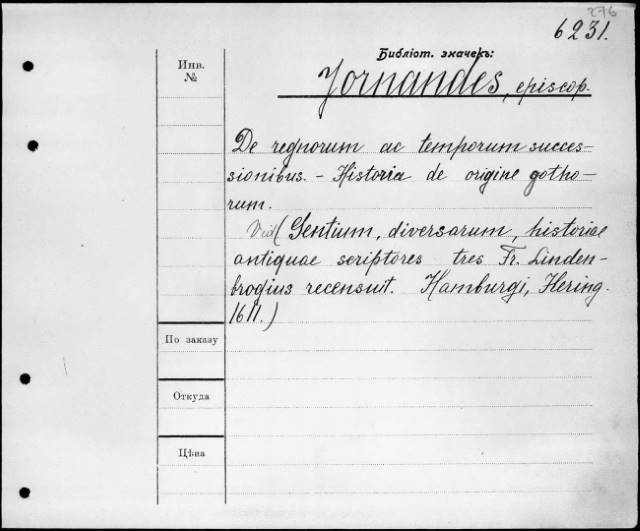 276
6231.
Библіот. значекъ:
Инв.
№
Jornandes, episcop.
De regnorum ac temporum succes-
sionibus. - Historia de origine gotho-
rum.
Vid (Gentium, diversarum, historiae
antiquae scriptores tres Fr. Linden-
brogius recensuit. Hamburgi, Hering.
1611.)
По заказу
Откуда
Цѣна